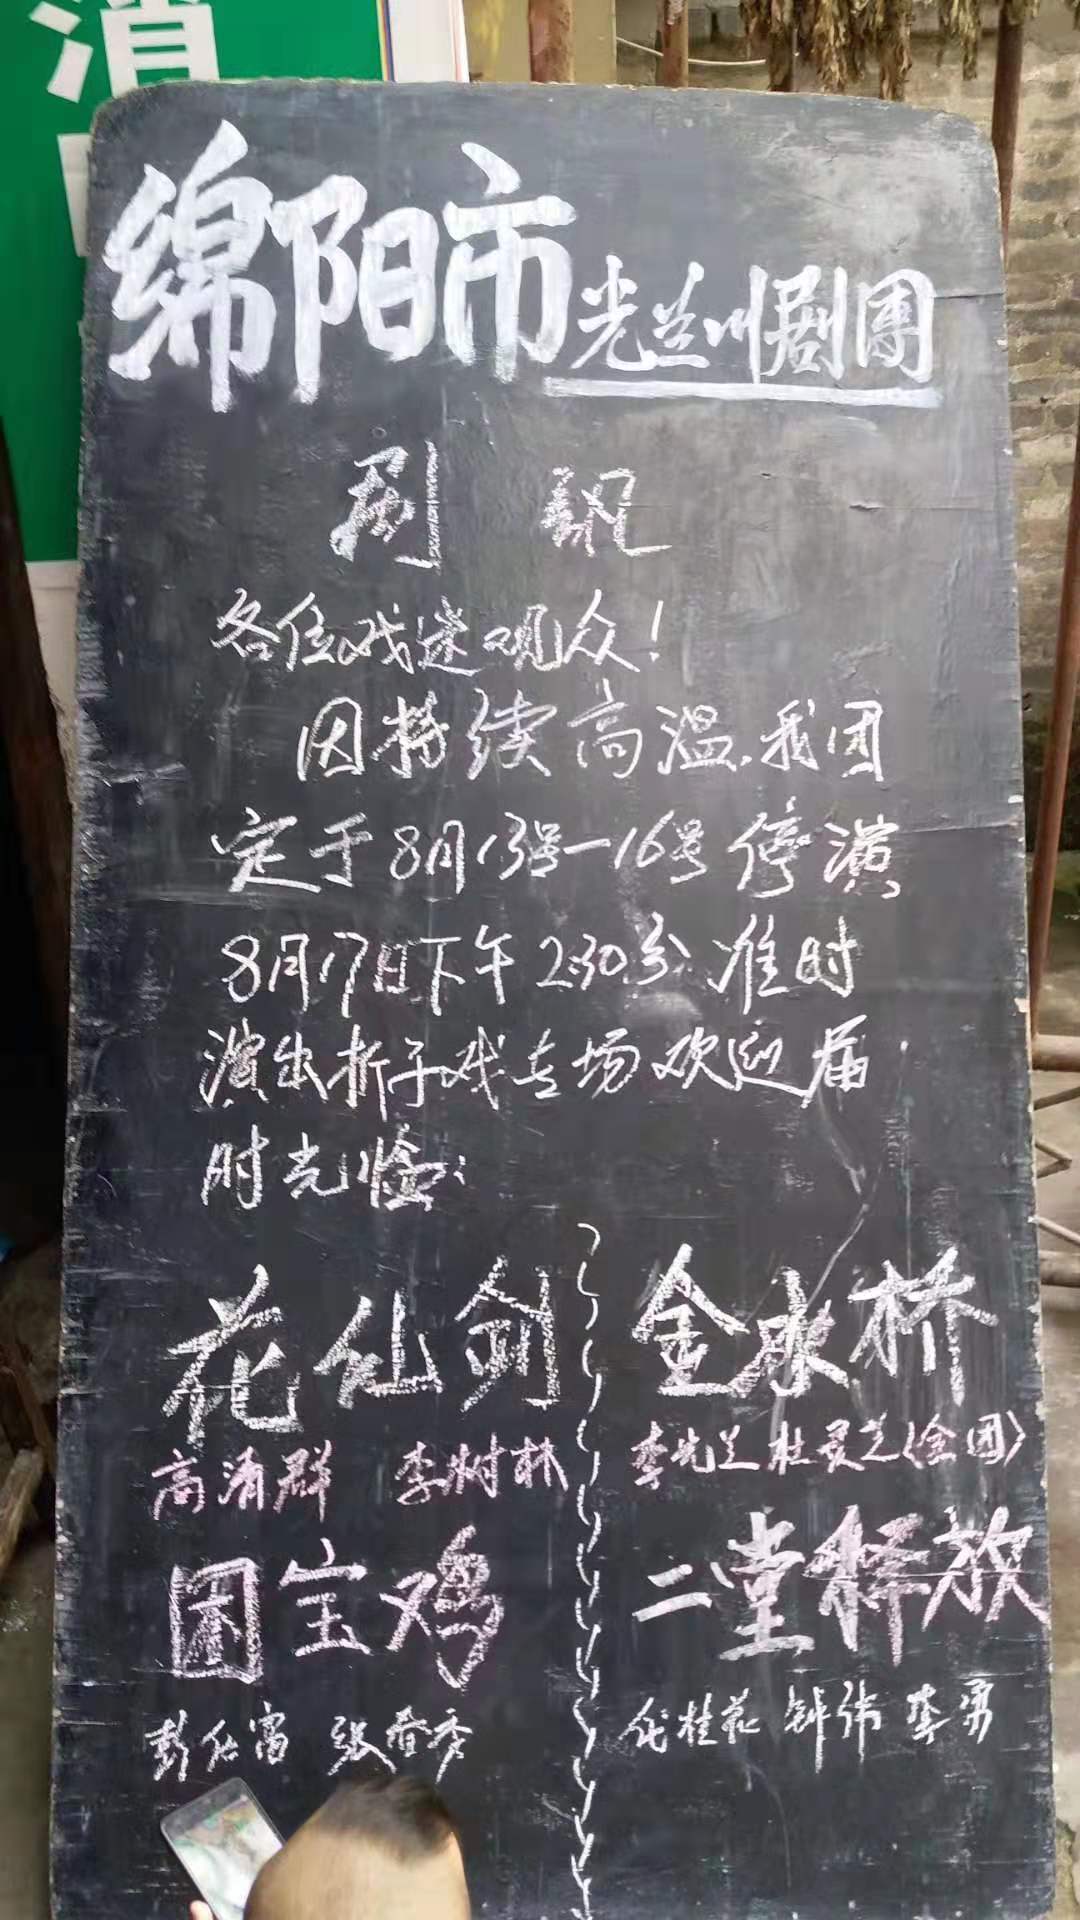 消
绵阳市光兰川剧團
剧讯
各位戏迷观众!
因持续高温.我团
定于8月13号-16号停演
8月17日下午2:30分准时
演出折子戏专场欢迎届
时光临:
花仙剑
高清群 李树林
金水桥
李光兰 杜灵芝(全团)
困宝鸡
彭仕富 张春秀
二堂释放
代桂花 钟伟 李勇